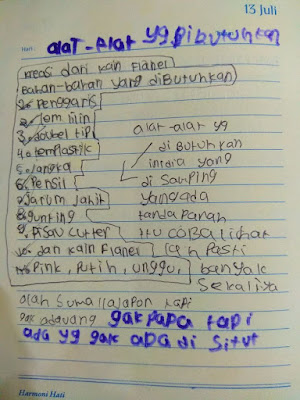 13 Juli
Hari:
alat-alat yg dibutuhkan
kreasi dari kain Flanel
Bahan-bahan yang diButuhkan
1. Penggaris
2. lem lilin
3. dabel tip
4. templastik
5. Jangka
6. Pensil
7. Jarum Jahit
8. gunting
9. Pisau cutter
10. dan kain Flanel
Pink, Putih, unggu,
alat-alat yg
di butuhkan
intdia yang
di Samping
yangada
tanda Panah
itu coBalihat
lah Pasti
banyak
Sekaliya
alah Suma
tapi
gak adauang gakpapa tapi
ada yg gak ada di situt
Harmoni Hati